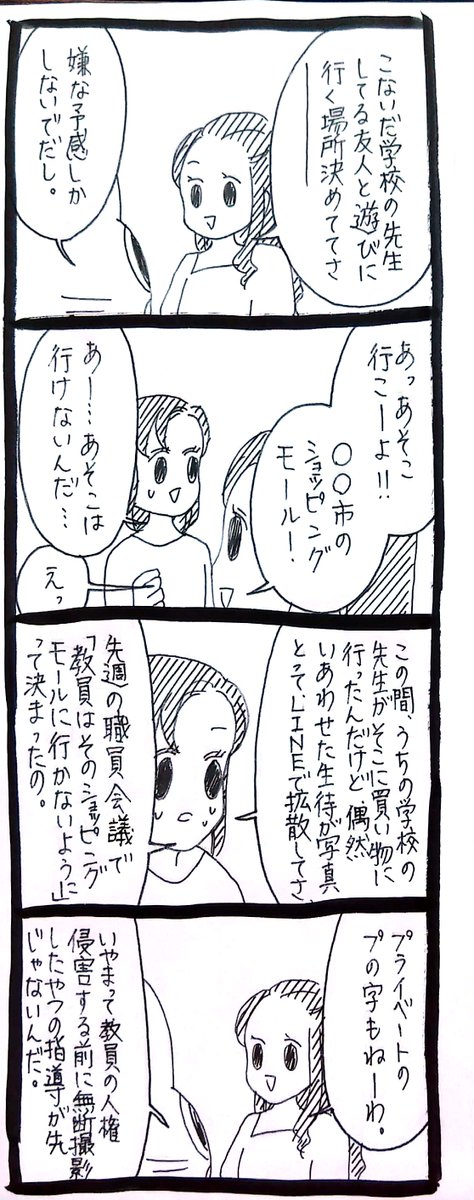 こないだ学校の先生
してる友人と遊びに
行く場所決めててさ
嫌な予感しか
しないでだし。
あっあそこ
行こーよ!!
〇〇市の
ショッピング
モール!
あー…あそこは
行けないんだ…
えっ
この間、うちの学校の
先生がそこに買い物に
行ったんだけど偶然
いあわせた生待が写真
とってLINEで拡散してさ、
先週の職員会議で
「教員はそのショッピング
モールに行かないように」
って決まったの。
プライベートの
プの字もねーわ。
いやまって教員の人権
侵害する前に無断撮影
したやつの指導が先
じゃないんだ。